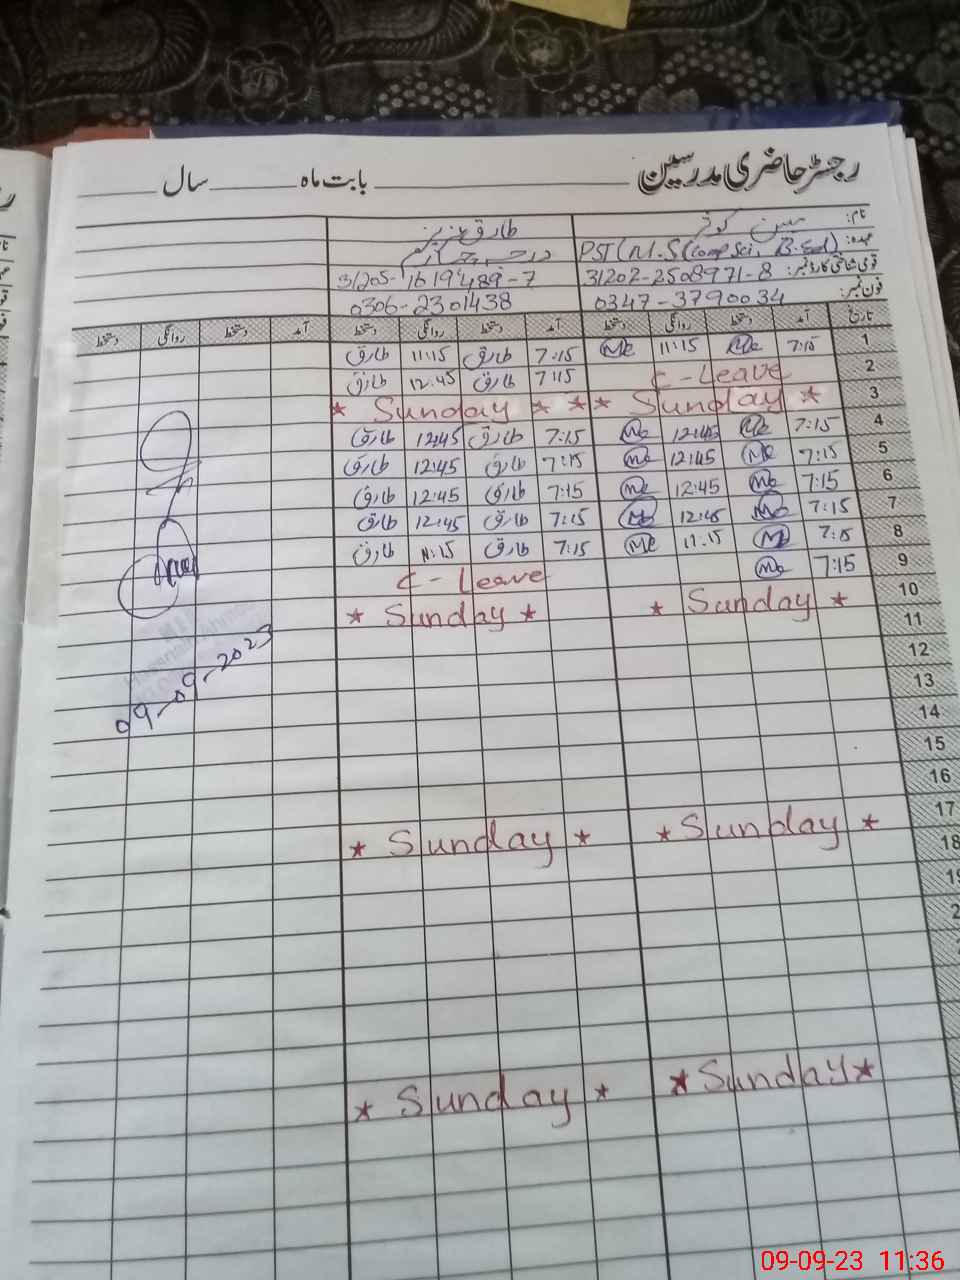 رجسٹر حاضری مدرسین ـــ بابت ماہ ـــ سال ـــ
نام: مبین کوثر طارق عزیز
عہدہ: PST (M.S (Comp Sci, B.Ed) درجہ چہارم
قومی شناختی کارڈ نمبر: 31202-2508971-8 31205-1619489-7
فون نمبر: 0347-3790034 0306-2301438
تاریخ آمد دستخط روانگی دستخط آمد دستخط روانگی دستخط آمد دستخط روانگی دستخط
1 7:15 Me 11:15 Me 7:15 طارق 11:15 طارق
2 C-Leave 7:15 طارق 12:45 طارق
3 * Sunday * * * Sunday *
4 7:15 Me 12:45 Me 7:15 طارق 12:45 طارق
5 7:15 Me 12:45 Me 7:15 طارق 12:45 طارق
6 7:15 Me 12:45 Me 7:15 طارق 12:45 طارق
7 7:15 Me 12:45 Me 7:15 طارق 12:45 طارق
8 7:15 Me 11:15 Me 7:15 طارق 11:15 طارق
9 7:15 Me C-Leave
10 * Sunday * * Sunday *
11
12
13
14
15
16
17 * Sunday * * Sunday *
18
* Sunday * * Sunday *
09-09-2023
09-09-23 11:36